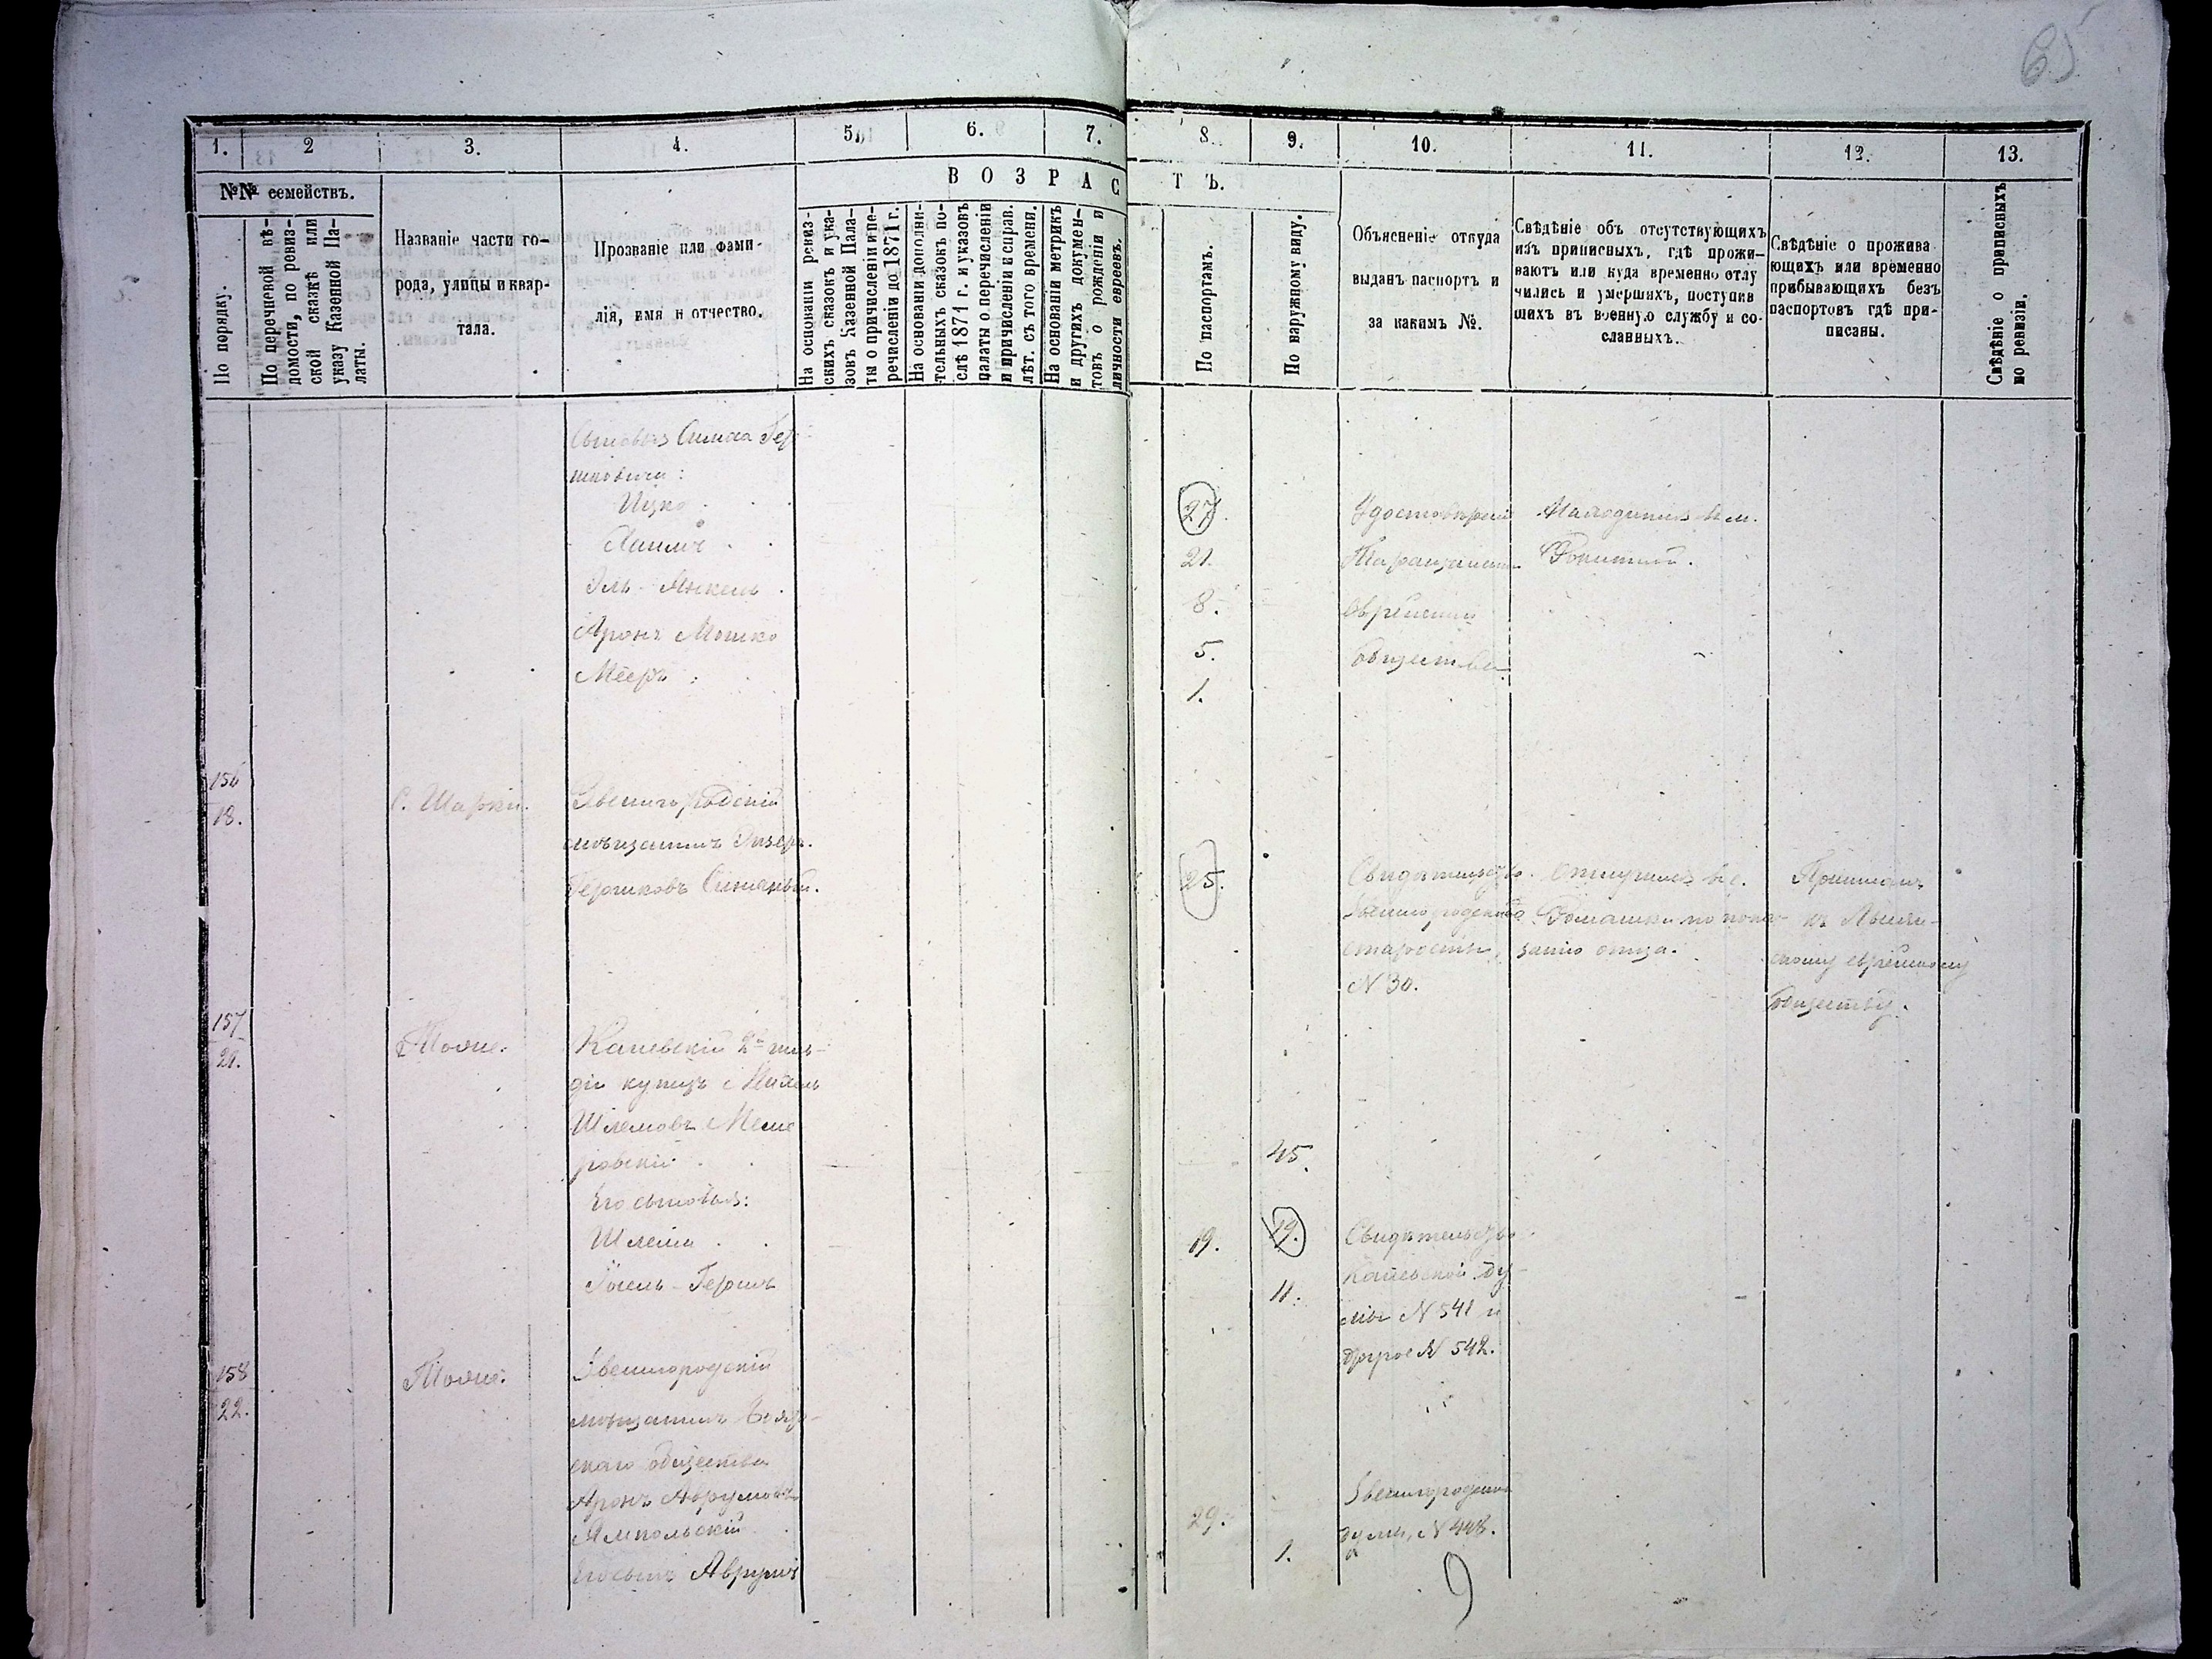 65
1. 2 3. 4. 5. 6. 7. 8. 9. 10. 11. 12. 13.
№№ семействъ.
В О З Р А С Т Ъ.
По порядку.
По перечневой вѣ-
домости, по ревиз-
ской сказкѣ или
указу Казенной Па-
латы.
Названіе части го-
рода, улицы и квар-
тала.
Прозваніе или фами-
лія, имя и отчество.
На основаніи ревиз-
скихъ сказокъ и ука-
зовъ Казенной Пала-
ты о причисленіи и пе-
речисленіи до 1871 г.
На основаніи дополни-
тельныхъ сказокъ по-
слѣ 1871 г. и указовъ
палаты о перечисленіи
и причисленіи и справ.
лѣт. съ того времени.
На основаніи метрикъ
и другихъ докумен-
товъ о рожденіи и
личности евреевъ.
По паспортамъ.
По наружному виду.
Объясненіе откуда
выданъ паспортъ и
за какимъ №.
Свѣдѣніе объ отсутствующихъ
изъ приписныхъ, гдѣ прожи-
ваютъ или куда временно отлу
чились и умершихъ, поступив
шихъ въ военную службу и со-
сланныхъ.
Свѣдѣніе о прожива
ющихъ или временно
прибывающихъ безъ
паспортовъ гдѣ при-
писаны.
Свѣдѣніе о приписныхъ
по ревизіи.
Сыновья Симхи Гер
шковича:
Ицко 27. Удостовѣреніе
Хаимъ 21. Таращанск
Эль-Янкель 8. еврейскаго
Аронъ Мошко 5. общества
Мееръ 1.
156
18.
С. Шарки. Звенигородскій
мѣщанинъ
Гершковъ 25. Свидѣтельство Отлучился въ с. Приписанъ
Звенигородскаго по пока- къ
старосты, занію отца. скому еврейскому
N 30. обществу.
157
21.
Тоже. Каневскій 2й гиль-
діи купецъ
Шлемовъ Меже
ровскій 45.
Его сыновья:
Шлема 19. 19. Свидѣтельство
Іосель-Гершъ 11. Каневской ду-
мы N 541 и
другое N 542.
158
22.
Тоже. Звенигородскій
мѣщанинъ
скаго общества
Аронъ Аврумовъ
Ямпольскій 29. Звенигородской
думы, N 448.
Его сынъ Аврумъ 1.
9